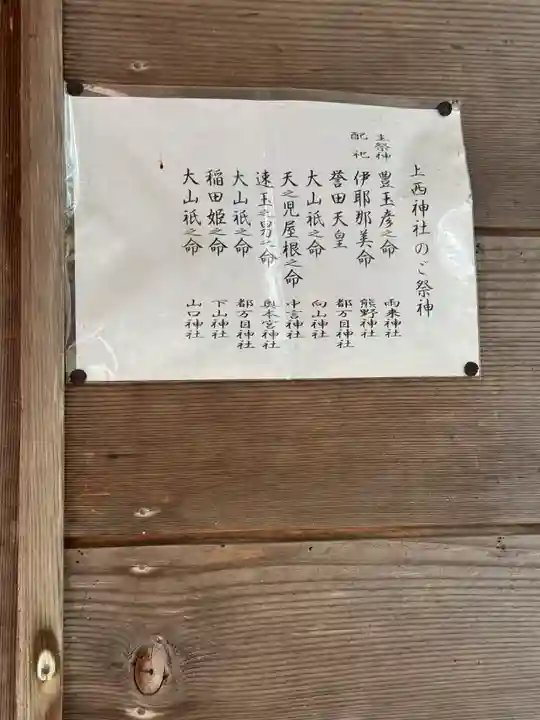 上西神社のご祭神
主祭神 豊玉彦之命 雨来神社
配祀 伊耶那美命 熊野神社
誉田天皇 都万目神社
大山祇之命 向山神社
天之児屋根之命 中言神社
速玉之男之命 奥本宮神社
大山祇之命 都万目神社
稲田姫之命 下山神社
大山祇之命 山口神社